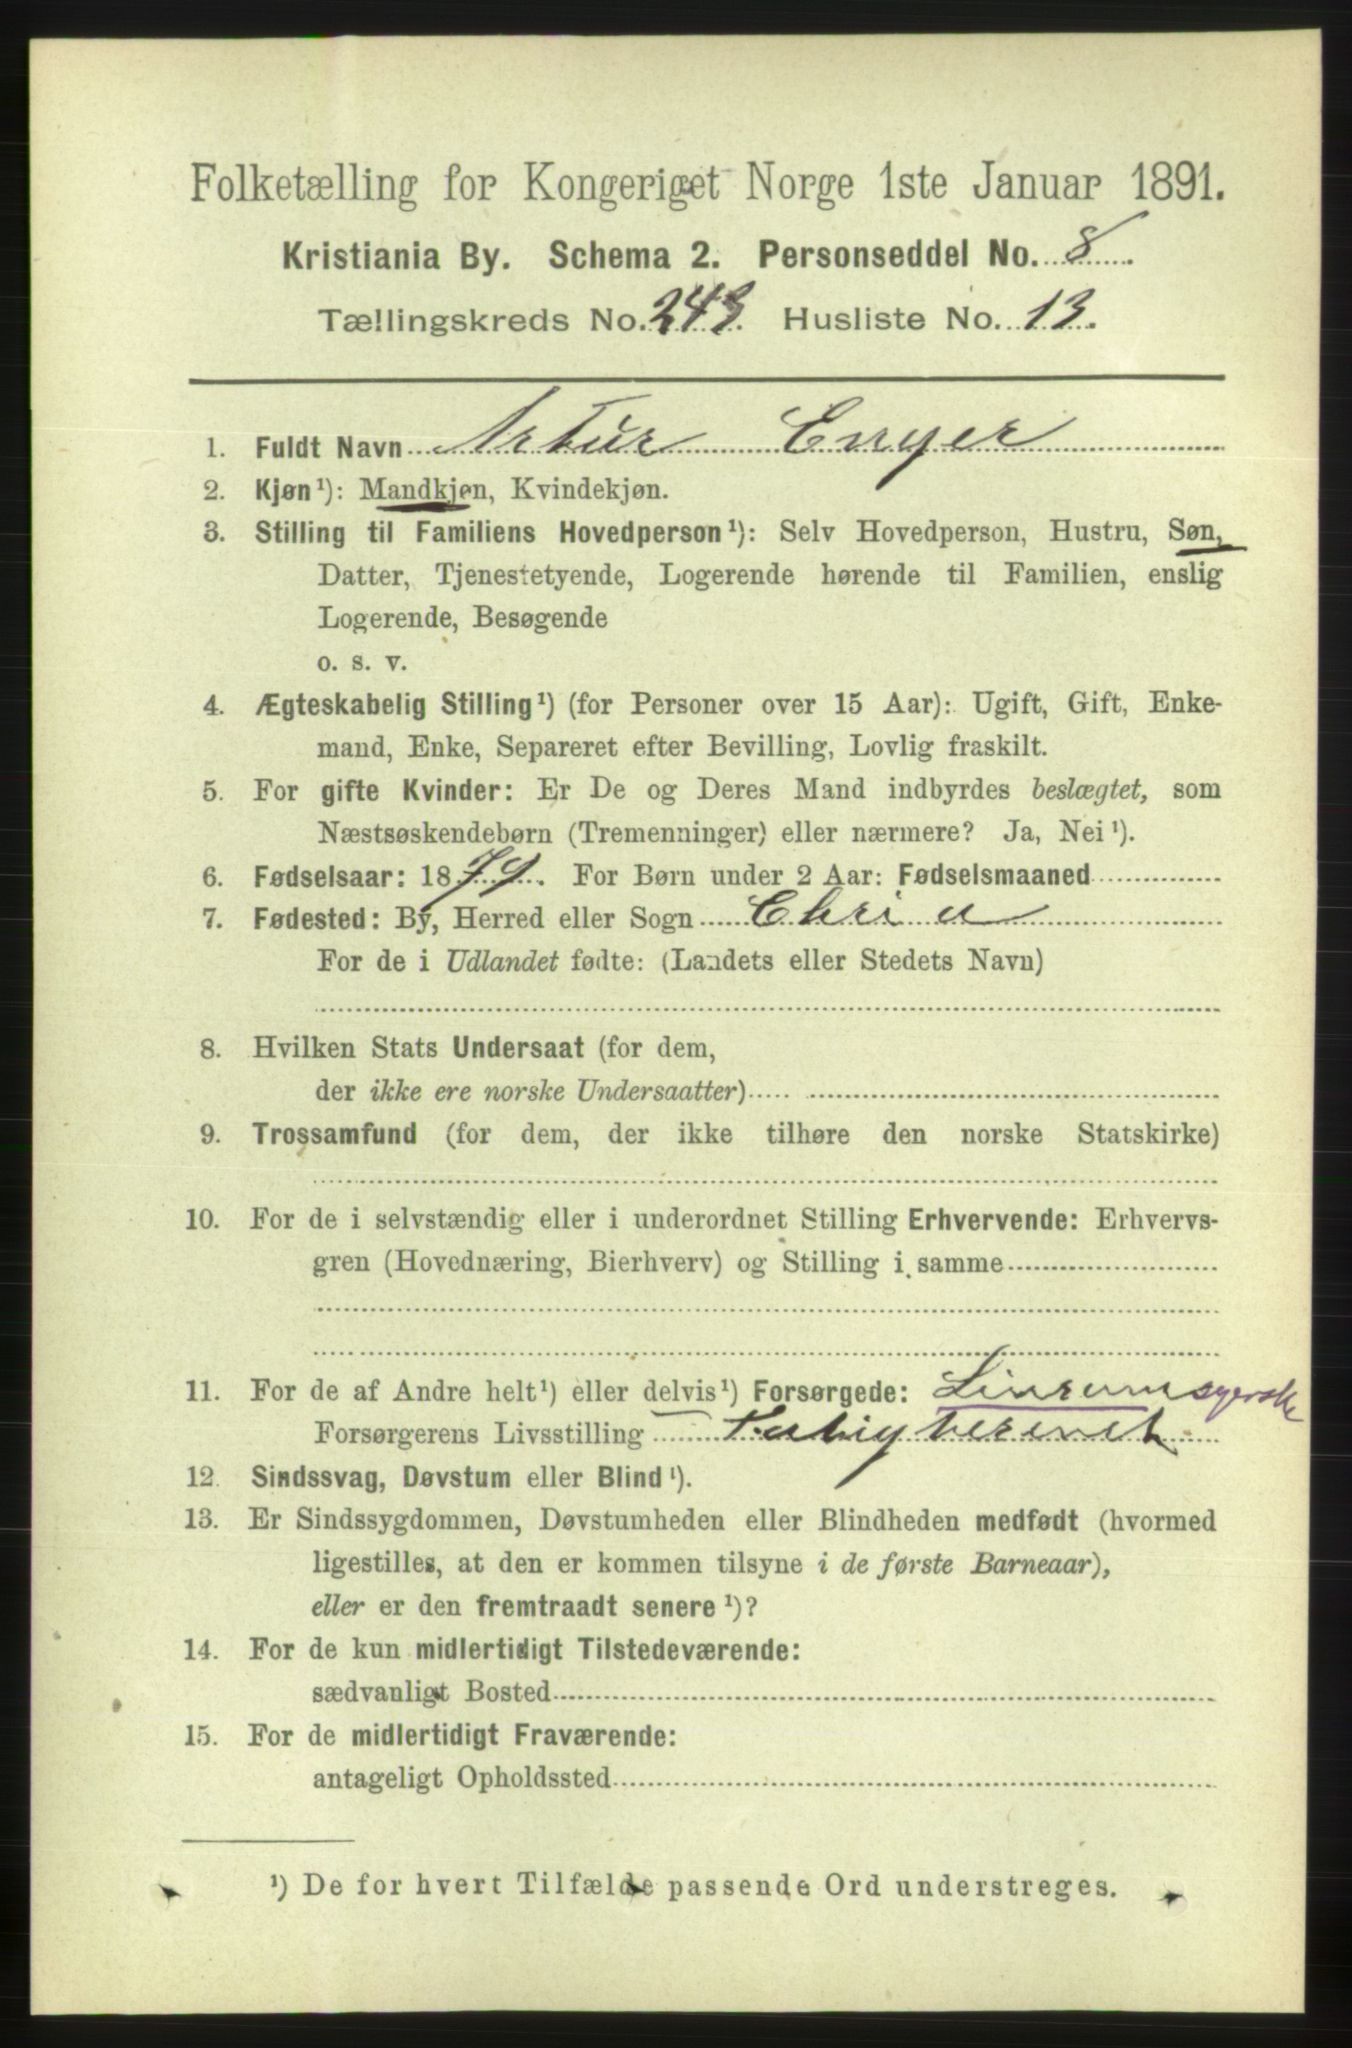 Folketælling for Kongeriget Norge 1ste Januar 1891.
Kristiania By. Schema 2. Personseddel No. 8
Tællingskreds No. 243. Husliste No. 13.
1. Fuldt Navn Artur Enger
2. Kjøn¹): Mandkjøn, Kvindekjøn.
3. Stilling til Familiens Hovedperson¹): Selv Hovedperson, Hustru, Søn,
Datter, Tjenestetyende, Logerende hørende til Familien, enslig
Logerende, Besøgende
o. s. v.
4. Ægteskabelig Stilling¹) (for Personer over 15 Aar): Ugift, Gift, Enke-
mand, Enke, Separeret efter Bevilling, Lovlig fraskilt.
5. For gifte Kvinder: Er De og Deres Mand indbyrdes beslægtet, som
Næstsøskendebørn (Tremenninger) eller nærmere? Ja, Nei¹).
6. Fødselsaar: 1879. For Børn under 2 Aar: Fødselsmaaned
7. Fødested: By, Herred eller Sogn Chria
For de i Udlandet fødte: (Landets eller Stedets Navn)
8. Hvilken Stats Undersaat (for dem,
der ikke ere norske Undersaatter)
9. Trossamfund (for dem, der ikke tilhøre den norske Statskirke)
10. For de i selvstændig eller i underordnet Stilling Erhvervende: Erhvervs-
gren (Hovednæring, Bierhverv) og Stilling i samme
11. For de af Andre helt¹) eller delvis¹) Forsørgede: Linsumsyerske
Forsørgerens Livsstilling
12. Sindssvag, Døvstum eller Blind¹).
13. Er Sindssygdommen, Døvstumheden eller Blindheden medfødt (hvormed
ligestilles, at den er kommen tilsyne i de første Barneaar),
eller er den fremtraadt senere¹)?
14. For de kun midlertidigt Tilstedeværende:
sædvanligt Bosted
15. For de midlertidigt Fraværende:
antageligt Opholdssted
¹) De for hvert Tilfælde passende Ord understreges.